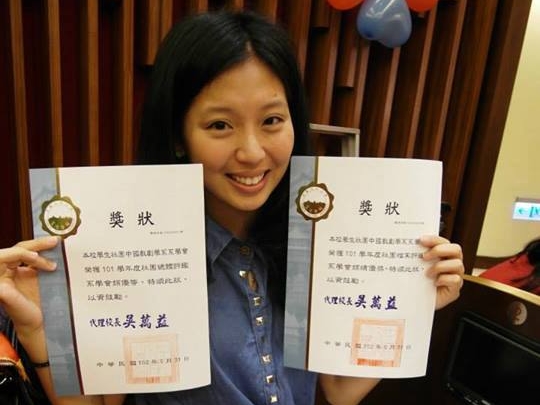 獎狀
本校學生社團中國戲劇學系系學會
榮獲101學年度社團總體評鑑
系學會類優等，特頒此狀，
以資鼓勵。
代理校長 吳萬益
中華民國102年5月31日
獎狀
本校學生社團中國戲劇學系系學會
榮獲101學年度社團檔案評鑑
系學會類優等，特頒此狀，
以資鼓勵。
代理校長 吳萬益
中華民國102年5月31日